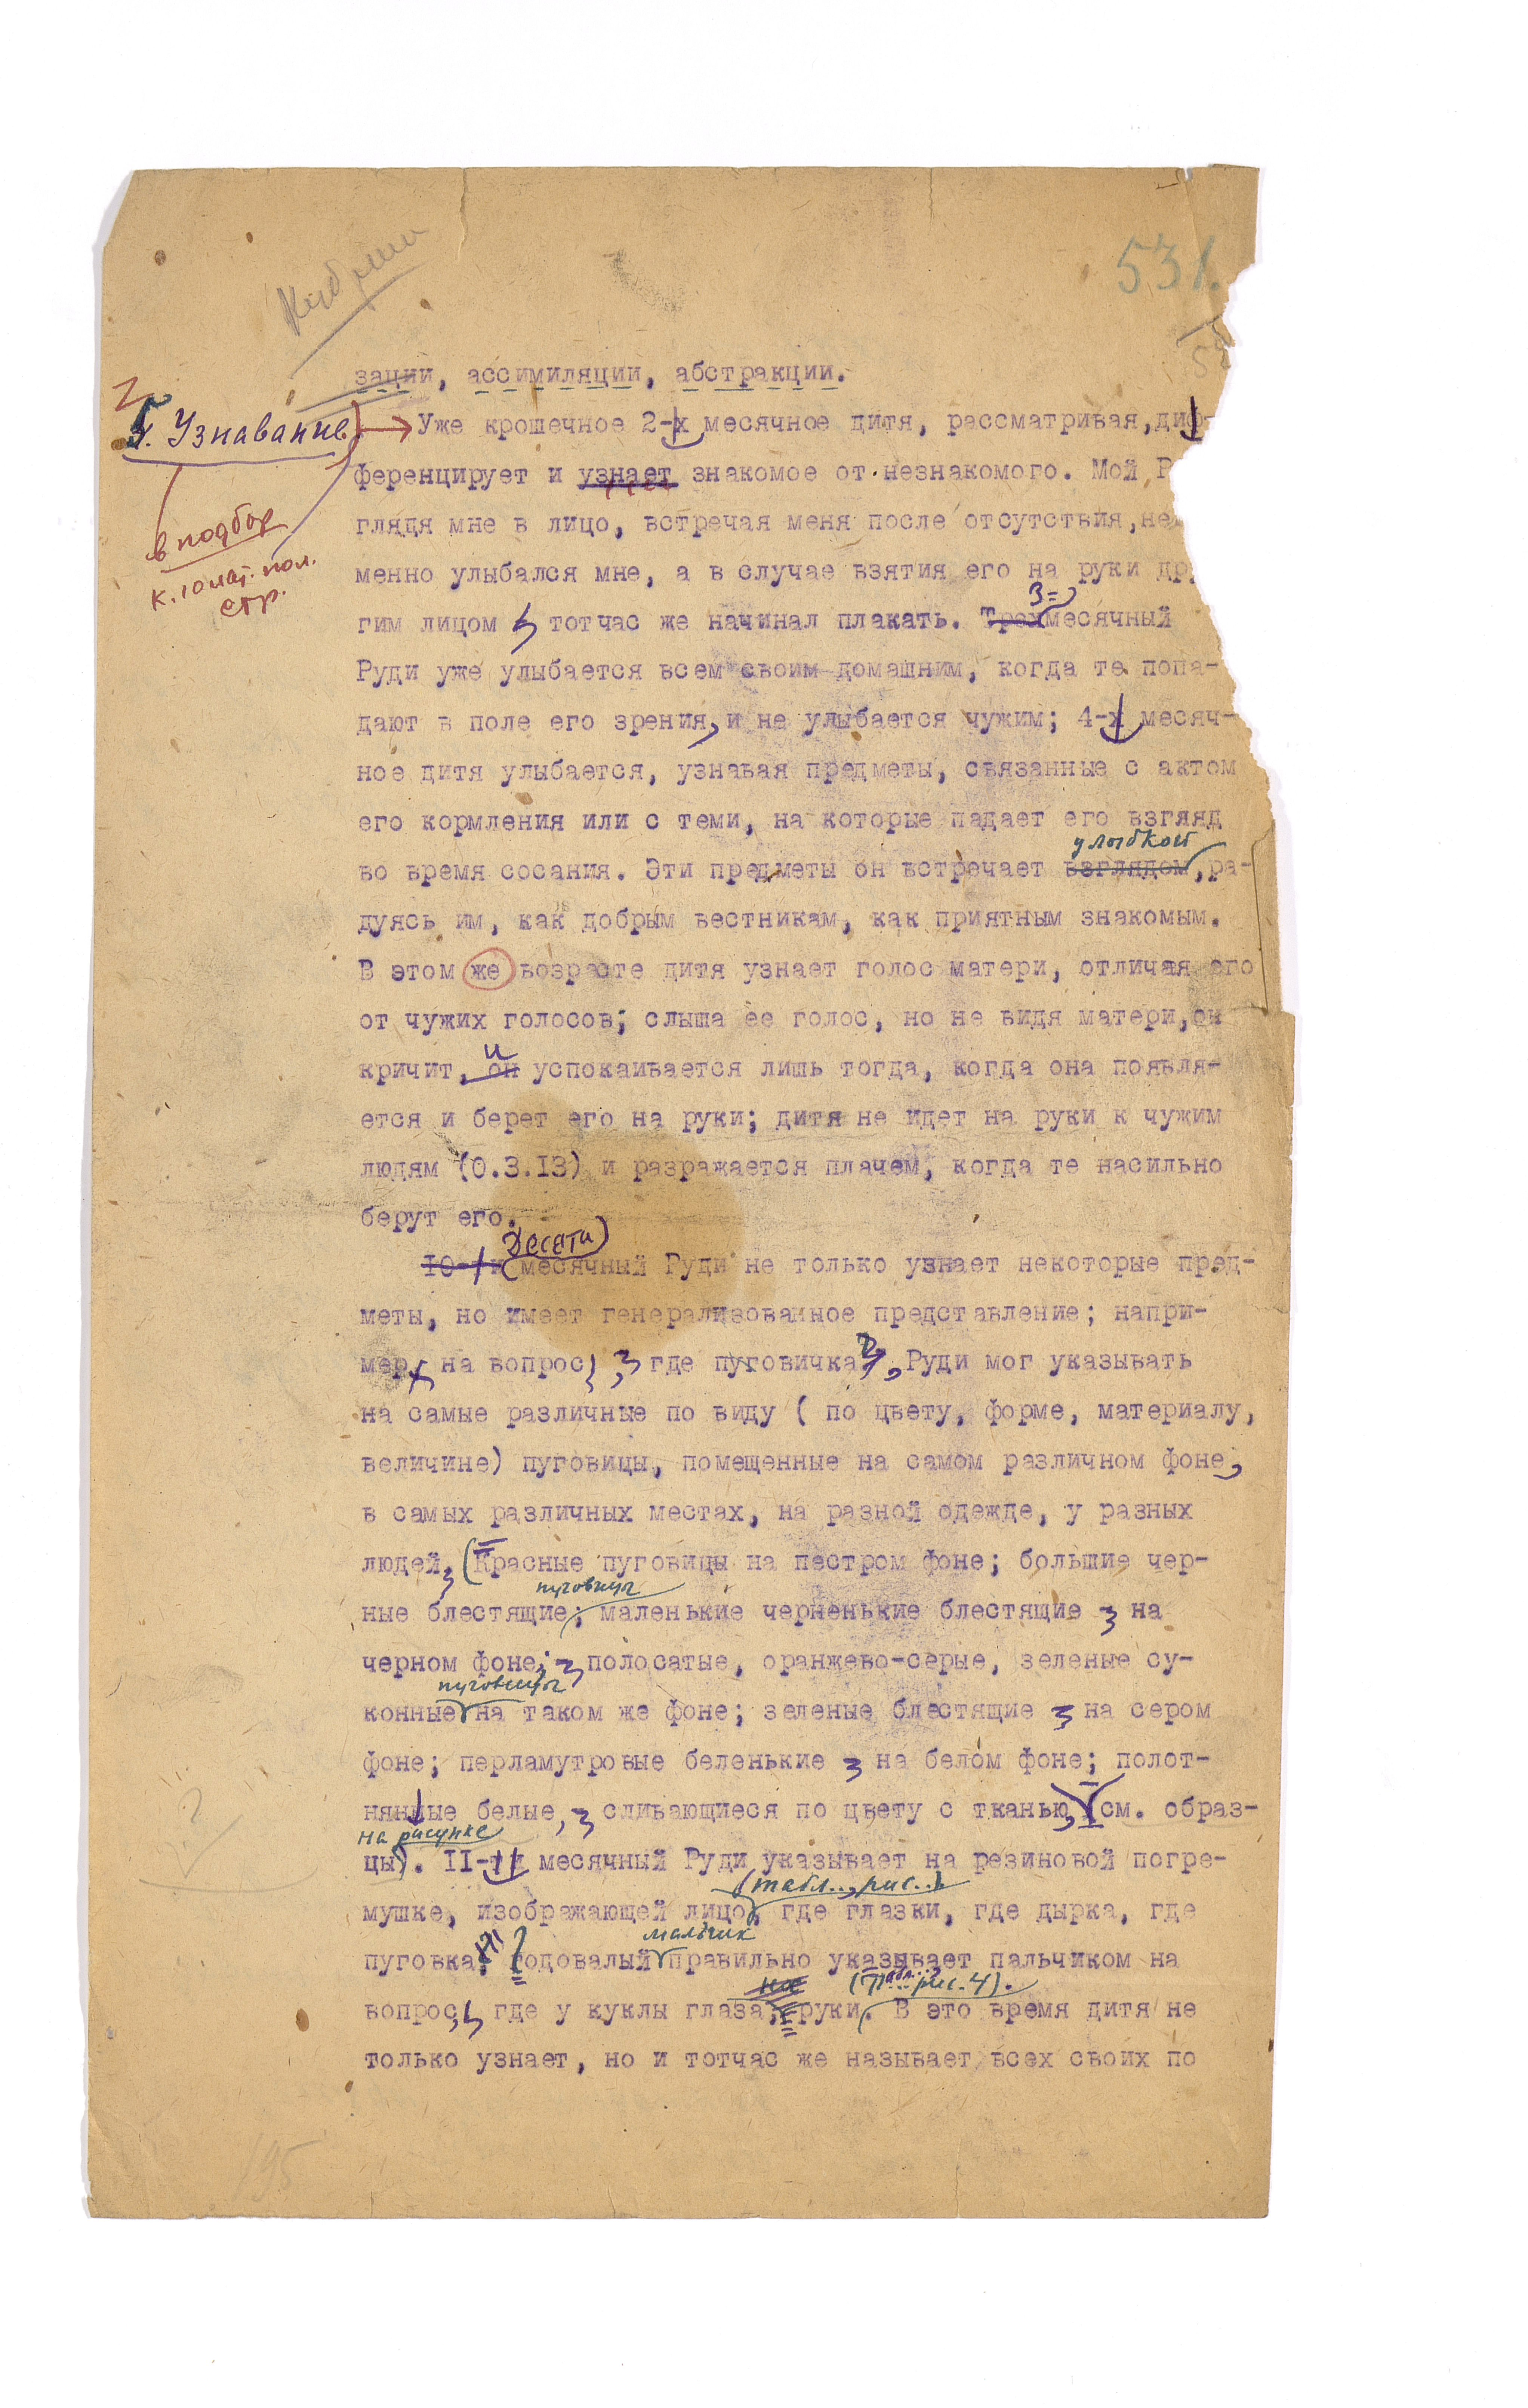 531.
зации, ассимиляции, абстракции.
Узнавание.
Уже крошечное 2-х месячное дитя, рассматривая, диф-
ференцирует и узнает знакомое от незнакомого. Мой
в подбор
глядя мне в лицо, встречая меня после отсутствия,
менно улыбался мне, а в случае взятия его на руки дру
стр.
3=
гим лицом тотчас же начинал плакать. Трехмесячный
Руди уже улыбается всем своим домашним, когда те попа-
дают в поле его зрения, и не улыбается чужим; 4-х месяч-
ное дитя улыбается, узнавая предметы, связанные с актом
его кормления или с теми, на которые падает его взгляд
улыбкой
во время сосания. Эти предметы он встречает взглядом, ра-
дуясь им, как добрым вестникам, как приятным знакомым.
В этом же возрасте дитя узнает голос матери, отличая его
от чужих голосов; слыша ее голос, но не видя матери, он
и
кричит, он успокаивается лишь тогда, когда она появля-
ется и берет его на руки; дитя не идет на руки к чужим
людям (0.3.13) и разражается плачем, когда те насильно
берут его.
Десяти
10-ти месячный Руди не только узнает некоторые пред-
меты, но имеет генерализованное представление; напри-
мер, на вопрос, где пуговичка?, Руди мог указывать
на самые различные по виду ( по цвету, форме, материалу,
величине) пуговицы, помещенные на самом различном фоне,
в самых различных местах, на разной одежде, у разных
людей, (Красные пуговицы на пестром фоне; большие чер-
пуговицы
ные блестящие; маленькие черненькие блестящие на
черном фоне; полосатые, оранжево-серые, зеленые су-
пуговицы
конные на таком же фоне; зеленые блестящие на сером
фоне; перламутровые беленькие на белом фоне; полот-
нянные белые, сливающиеся по цвету с тканью (см. образ-
на рисунке
цы). 11-ти месячный Руди указывает на резиновой погре-
(табл.., рис..)
мушке, изображающей лицо, где глазки, где дырка, где
мальчик
пуговка; годовалый правильно указывает пальчиком на
(Табл... рис. 4).
вопрос, где у куклы глаза, руки. В это время дитя не
только узнает, но и тотчас же называет всех своих по
195